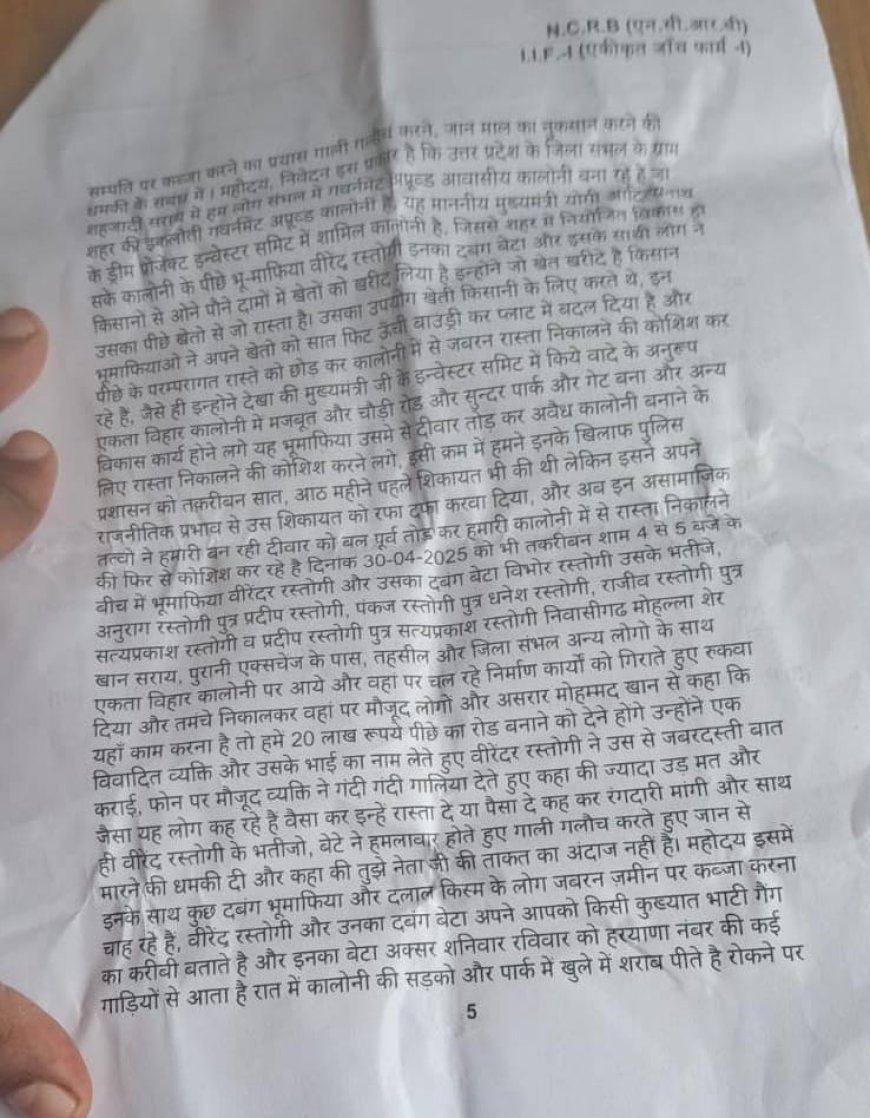 N.C.R.B (एन.सी.आर.बी)
I.I.F.-I (एकीकृत जाँच फार्म -I)
सम्पति पर कब्जा करने का प्रयास गाली गलौच करने, जान माल का नुकसान करने की
धमकी के संबध में। महोदय, निवेदन इस प्रकार है कि उत्तर प्रदेश के जिला संभल के ग्राम
शहजादी सराय में हम लोग संभल में गवर्नमेंट अप्रूव्ड आवासीय कालोनी बना रहे है जो
शहर की इकलौती गवर्नमेंट अप्रूव्ड कालोनी है, यह माननीय मुख्यमंत्री योगी आदित्यनाथ
के ड्रीम प्रोजेक्ट इन्वेस्टर समिट में शामिल कालोनी है, जिससे शहर में नियोजित विकास हो
सके कालोनी के पीछे भू-माफिया वीरेंद्र रस्तोगी इनका दबंग बेटा और इसके साथी लोग ने
किसानो से ओने पौने दामों में खेतों को खरीद लिया है इन्होंने जो खेत खरीदे है किसान
उसका पीछे खेतो से जो रास्ता है। उसका उपयोग खेती किसानी के लिए करते थे, इन
भूमाफियाओ ने अपने खेतो को सात फिट ऊँची बाउंड्री कर प्लाट में बदल दिया है और
पीछे के परम्परागत रास्ते को छोड़ कर कालोनी में से जबरन रास्ता निकालने की कोशिश कर
रहे हैं, जैसे ही इन्होने देखा की मुख्यमंत्री जी के इन्वेस्टर समिट में किये वादे के अनुरूप
एकता विहार कालोनी मे मजबूत और चौड़ी रोड और सुन्दर पार्क और गेट बना और अन्य
विकास कार्य होने लगे यह भूमाफिया उसमे से दीवार तोड़ कर अवैध कालोनी बनाने के
लिए रास्ता निकालने की कोशिश करने लगे, इसी क्रम में हमने इनके खिलाफ पुलिस
प्रशासन को तक़रीबन सात, आठ महीने पहले शिकायत भी की थी लेकिन इसने अपने
राजनीतिक प्रभाव से उस शिकायत को रफा दफा करवा दिया, और अब इन असामाजिक
तत्वो ने हमारी बन रही दीवार को बल पूर्व तोड़ कर हमारी कालोनी में से रास्ता निकालने
की फिर से कोशिश कर रहे है दिनांक 30-04-2025 को भी तकरीबन शाम 4 से 5 बजे के
बीच में भूमाफिया वीरेंदर रस्तोगी और उसका दबंग बेटा विभोर रस्तोगी उसके भतीजे,
अनुराग रस्तोगी पुत्र प्रदीप रस्तोगी, पंकज रस्तोगी पुत्र धनेश रस्तोगी, राजीव रस्तोगी पुत्र
सत्यप्रकाश रस्तोगी व प्रदीप रस्तोगी पुत्र सत्यप्रकाश रस्तोगी निवासीगढ मोहल्ला शेर
खान सराय, पुरानी एक्सचेंज के पास, तहसील और जिला संभल अन्य लोगो के साथ
एकता विहार कालोनी पर आये और वहां पर चल रहे निर्माण कार्यों को गिराते हुए रुकवा
दिया और तमंचे निकालकर वहां पर मौजूद लोगों और असरार मोहम्मद खान से कहा कि
यहाँ काम करना है तो हमे 20 लाख रूपये पीछे का रोड बनाने को देने होंगे उन्होंने एक
विवादित व्यक्ति और उसके भाई का नाम लेते हुए वीरेंदर रस्तोगी ने उस से जबरदस्ती बात
कराई, फोन पर मौजूद व्यक्ति ने गंदी गंदी गालिया देते हुए कहा की ज्यादा उड़ मत और
जैसा यह लोग कह रहे हैं वैसा कर इन्हे रास्ता दे या पैसा दे कह कर रंगदारी मांगी और साथ
ही वीरेंद्र रस्तोगी के भतीजो, बेटे ने हमलावार होते हुए गाली गलौच करते हुए जान से
मारने की धमकी दी और कहा की तुझे नेता जी की ताकत का अंदाज नहीं है। महोदय इसमें
इनके साथ कुछ दबंग भूमाफिया और दलाल किस्म के लोग जबरन जमीन पर कब्जा करना
चाह रहे है, वीरेंद्र रस्तोगी और उनका दबंग बेटा अपने आपको किसी कुख्यात भाटी गैंग
का करीबी बताते है और इनका बेटा अक्सर शनिवार रविवार को हरयाणा नंबर की कई
गाड़ियों से आता है रात में कालोनी की सड़को और पार्क में खुले में शराब पीते है रोकने पर
5